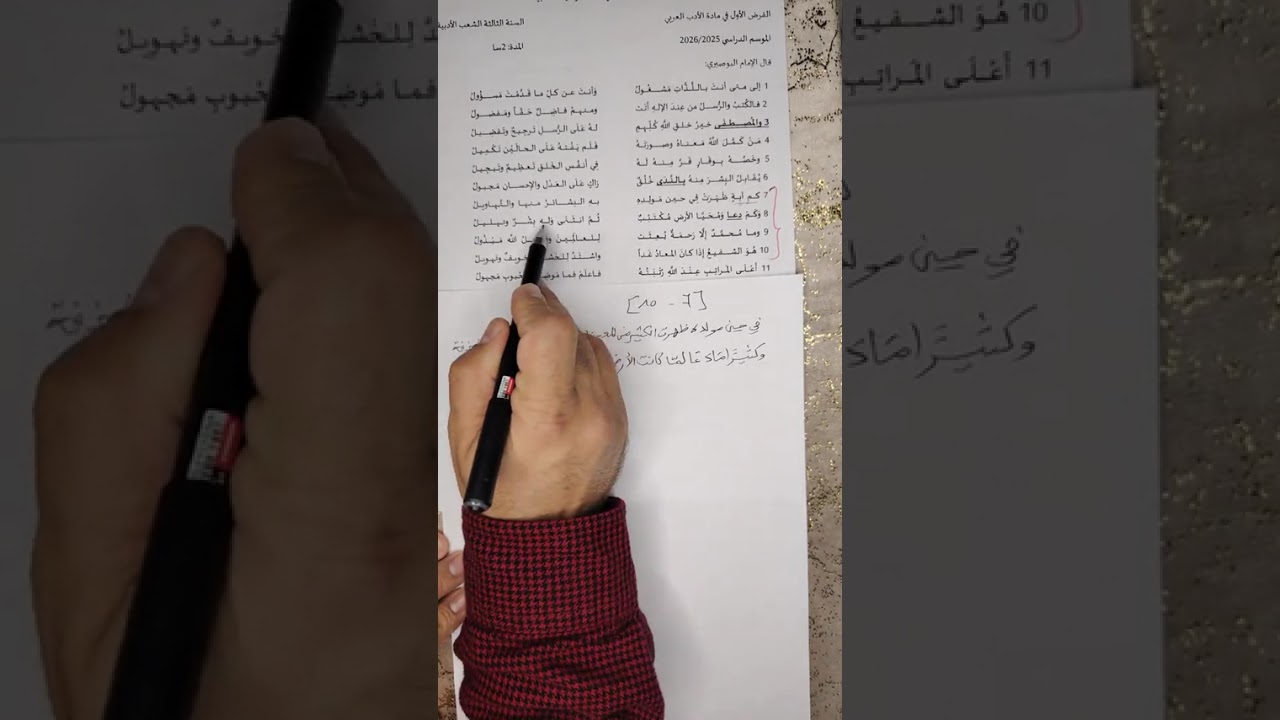 الفرض الأول في مادة الأدب العربي السنة الثالثة الشعب الأدبية
الموسم الدراسي 2026/2025 المدة: 2سا
قال الإمام البوصيري:
1 إلى متى أنتَ باللَّذَّاتِ مَشغُولُ وَأنتَ عن كلِّ ما قَدَّمْتَ مَسؤُولُ
2 فالكُتبُ والرُّسلُ من عِندِ الإلهِ أتَت ومنهمُ فاضِلٌ حَقّاً وَمَفضولُ
3 وَالمُصطَفَى خيرُ خلقِ اللَّهِ كُلِّهِمِ لهُ عَلَى الرُّسلِ تَرجيحٌ وتَفضِيلُ
4 مَن كَمَّلَ اللَّهُ مَعناهُ وصورتَهُ فَلَم يَفُتهُ عَلَى الحالَيْنِ تَكمِيلُ
5 وخَصَّهُ بوقارٍ قَرَّ مِنهُ لَهُ فِي أنفُسِ الخَلقِ تَعظِيمٌ وتَبجِيلُ
6 يُقابِلُ البِشرَ مِنهُ بالنَّدَى خُلُقٌ زاكٍ عَلَى العَدلِ والإحسانِ مَجبولُ
7 كم آيةٍ ظَهَرَتْ فِي حينِ مَولِدِهِ بهِ البشائرُ منها والتَّهاوِيلُ
8 وَكَم دعا وَمُحَيَّا الأرضِ مُكتَئِبٌ ثُمَّ انثَنَى وَلهِ بِشْرٌ وتهليلُ
9 وما مُحمَّدٌ إلّا رَحمةٌ بُعِثَت لِلعالَمِينَ اللَّه مَبذُولُ
10 هُوَ الشفيعُ إذا كانَ المعادُ غَداً واشتدَّ لِلحَشرِ تَخويفٌ وتَهويلُ
11 أعْلَى المَراتِبِ عِنْدَ اللَّهِ رُتْبَتُهُ فاعلَم فما مَوضِعُ المَحبوبِ مَجهولُ
[7 - 10]
في حين مولده ظهرت الكثير من
وكثيرًا ما دعا لما كانت الأرض
10 هُوَ الشفيعُ
11 أعْلَى المَراتِبِ
في حين مولد
وكثيرًا ما د